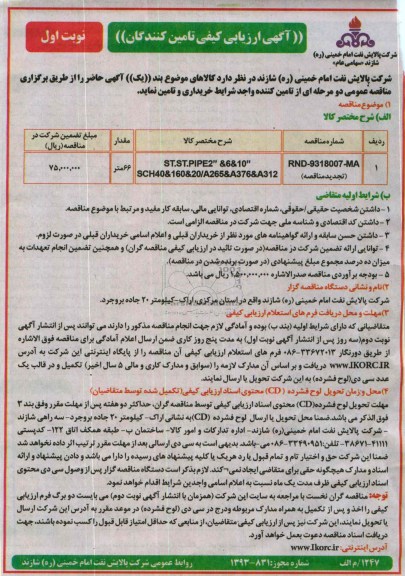 ((آگهی ارزیابی کیفی تامین کنندگان))
نوبت اول
شرکت پالایش نفت امام خمینی (ره)
شازند «سهامی عام»
شرکت پالایش نفت امام خمینی (ره) شازند در نظر دارد کالاهای موضوع بند ((یک)) آگهی حاضر را از طریق برگزاری
مناقصه عمومی دو مرحله ای از تامین کننده واجد شرایط خریداری و تامین نماید.
۱) موضوع مناقصه
الف) شرح مختصر کالا
ردیف شماره مناقصه شرح مختصر کالا مقدار مبلغ تضمین شرکت در مناقصه (ریال)
۱ RND-9318007-MA (تجدید مناقصه) ST.ST.PIPE2" &6&10" SCH40&160&20/A265&A376&A312 ۶۶متر ۷۵,۰۰۰,۰۰۰
ب) شرایط اولیه متقاضی
۱- داشتن شخصیت حقیقی/حقوقی، شماره اقتصادی، توانایی مالی، سابقه کار مفید و مرتبط با موضوع مناقصه.
۲- داشتن کد اقتصادی و شناسه ملی جهت شرکت در مناقصه الزامی است.
۳- داشتن حسن سابقه و ارائه گواهینامه های مورد نظر از خریداران قبلی و اعلام اسامی خریداران قبلی در صورت لزوم.
۴- توانایی ارائه تضمین شرکت در مناقصه (در صورت تائید در ارزیابی کیفی مناقصه گران) و همچنین تضمین انجام تعهدات به
میزان ده درصد مجموع مبلغ پیشنهادی (در صورت برنده شدن در مناقصه).
۵- بودجه برآوردی مناقصه صدرالاشاره ۱,۵۰۰,۰۰۰,۰۰۰ ریال می باشد.
۲)نام و نشانی دستگاه مناقصه گزار
شرکت پالایش نفت امام خمینی (ره) شازند واقع در استان مرکزی، اراک، کیلومتر ۲۰ جاده بروجرد.
۳)مهلت و محل دریافت فرم های استعلام ارزیابی کیفی
متقاضیانی که دارای شرایط اولیه (بند ب) بوده و آمادگی لازم جهت انجام مناقصه مذکور را دارند می توانند پس از انتشار آگهی
نوبت دوم (سه روز پس از انتشار آگهی نوبت اول) به مدت پنج روز کاری ضمن ارسال اعلام آمادگی برای مناقصه فوق الاشاره
از طریق دورنگار ۳۳۶۷۲۰۱۳-۰۸۶ فرم های استعلام ارزیابی کیفی آن مناقصه را از پایگاه اینترنتی این شرکت به آدرس
WWW.IKORC.IR دریافت و بر اساس آن مدارک لازمه را (سوابق و مدارک کاری و مالی ۵ سال اخیر) تکمیل و در قالب یک
عدد سی دی(لوح فشرده) به این شرکت تحویل یا ارسال نمایند.
۴)محل و زمان تحویل لوح فشرده (CD) محتوی اسناد ارزیابی کیفی(تکمیل شده توسط متقاضیان)
مهلت تحویل لوح فشرده(CD) محتوی اسناد ارزیابی کیفی توسط مناقصه گران، حداکثر دو هفته پس از مهلت مقرر وفق بند ۳
فوق الذکر می باشد. ضمنا محل تحویل یا ارسال لوح فشرده (CD) به نشانی اراک- کیلومتر ۲۰ جاده بروجرد- سه راهی شازند
- شرکت پالایش نفت امام خمینی(ره) شازند- اداره تدارکات و امور کالا- ساختمان ب- طبقه همکف اتاق ۱۲۲- کدپستی
۳۸۶۷۱-۴۱۱۱۱ تلفن: ۳۳۴۹۰۹۵۱-۰۸۶ می باشد. بدیهی است به سی دی ارسالی بعد از مهلت مقرر ترتیب اثر داده نخواهد شد
ضمنا این شرکت حق و اختیار تام و تمام قبول یا رد هر یک یا کلیه پیشنهاد های رسیده را دارا می باشد و دادن پیشنهاد و ارائه
اسناد و مدارک هیچگونه حقی برای متقاضی ایجاد نمی کند. لازم بذکر است دستگاه مناقصه گزار پس از وصول سی دی محتوی
اسناد ارزیابی کیفی ظرف مدت یک ماه نسبت به اعلام اسامی واجدین شرایط اقدام خواهد نمود.
توجه: مناقصه گران نخست با مراجعه به سایت این شرکت (همزمان با انتشار آگهی نوبت دوم) می بایست دو برگ فرم ارزیابی
کیفی را اخذ و پس از تکمیل به همراه مدارک مربوطه ودرج در سی دی (لوح فشرده) در موعد مقرر به آدرس این شرکت ارسال
یا تحویل نمایند. این شرکت نیز پس از ارزیابی کیفی متقاضیان، از منابعی که حداقل امتیاز قابل قبول را کسب نموده باشند، جهت
دریافت اسناد مناقصه دعوت بعمل خواهد آورد.
آدرس اینترنتی: www.Ikorc.ir
۱۲۴۷/م الف
شماره مجوز: ۸۳۱-۱۳۹۳
روابط عمومی شرکت پالایش نفت امام خمینی (ره) شازند